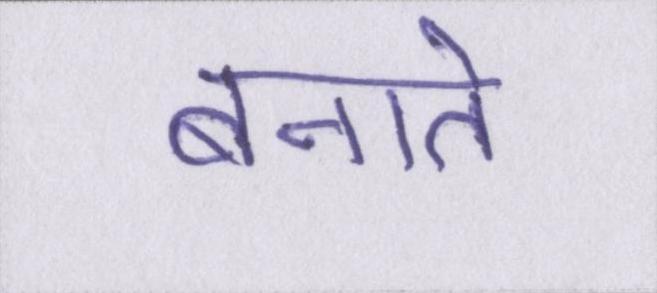 बनाते